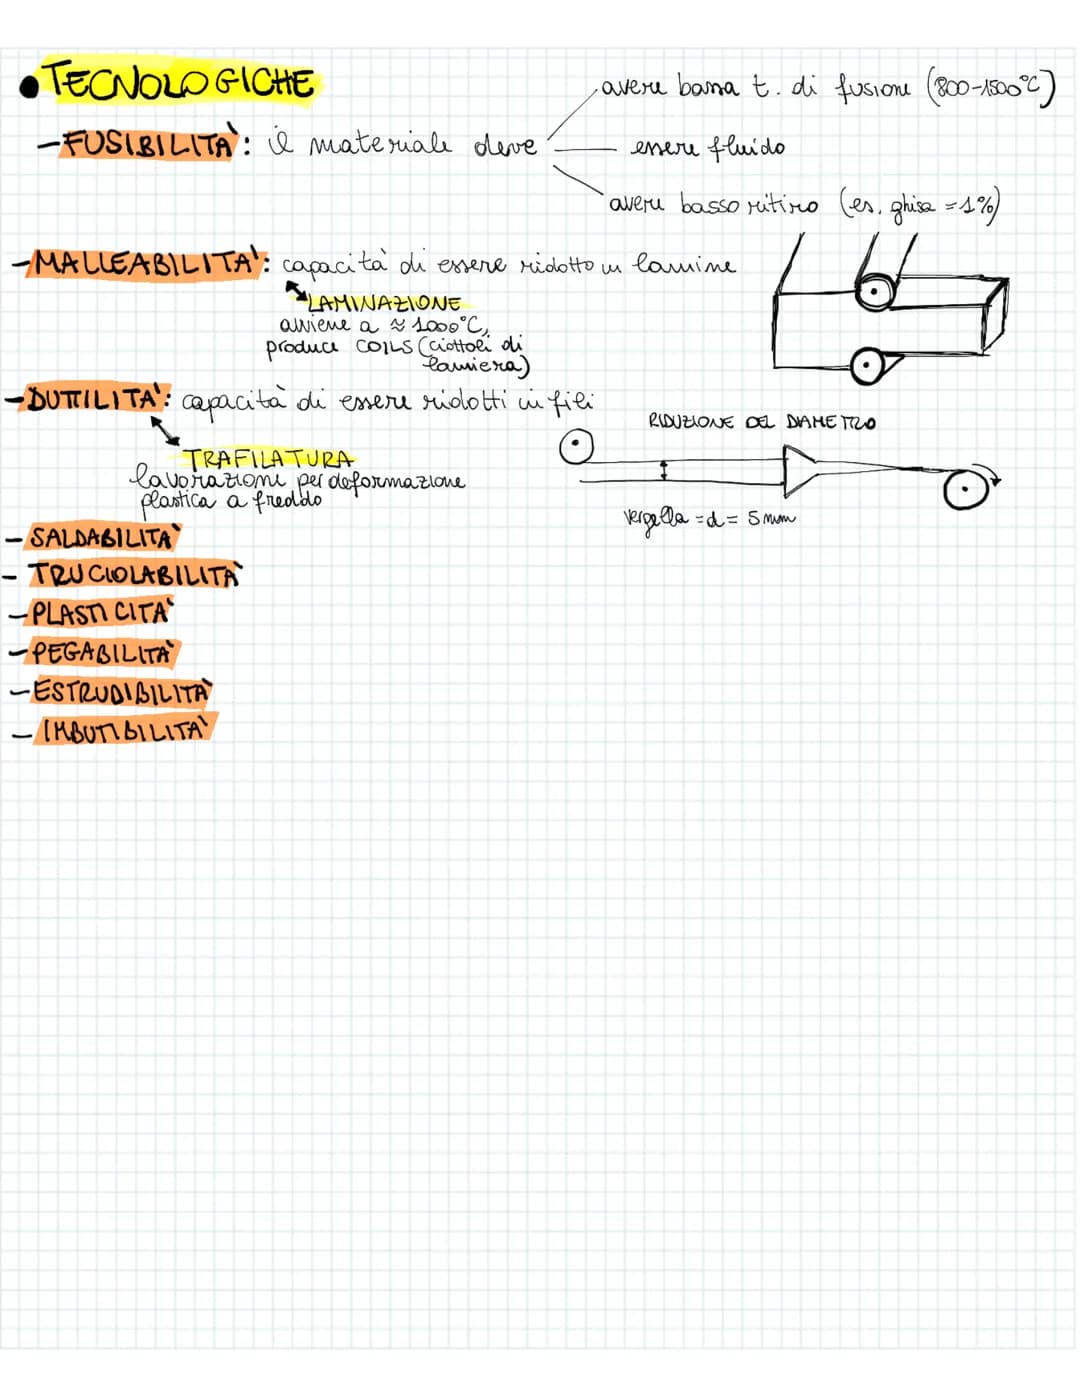 • TECNOLOGICHE
- FUSIBILITÀ: il materiale deve
avere bassa t. di fusione (800-1500°C)
essere fluido
avere basso ritiro (es. ghisa = 1%)
- MALLEABILITA': capacità di essere ridotto in lamine
LAMINAZIONE
avviene a ≈ 1000°C,
produce COILS (ciottoli di
lamiera)
- DUTTILITA': capacità di essere ridotti in fili
TRAFILATURA
lavorazione per deformazione
plastica a freddo
RIDUZIONE DEL DIAMETRO
vergella = d = 5mm
- SALDABILITA'
- TRUCIOLABILITÀ
- PLASTICITA'
- PEGABILITÀ
- ESTRUDIBILITÀ
- IMBUTIBILITA'